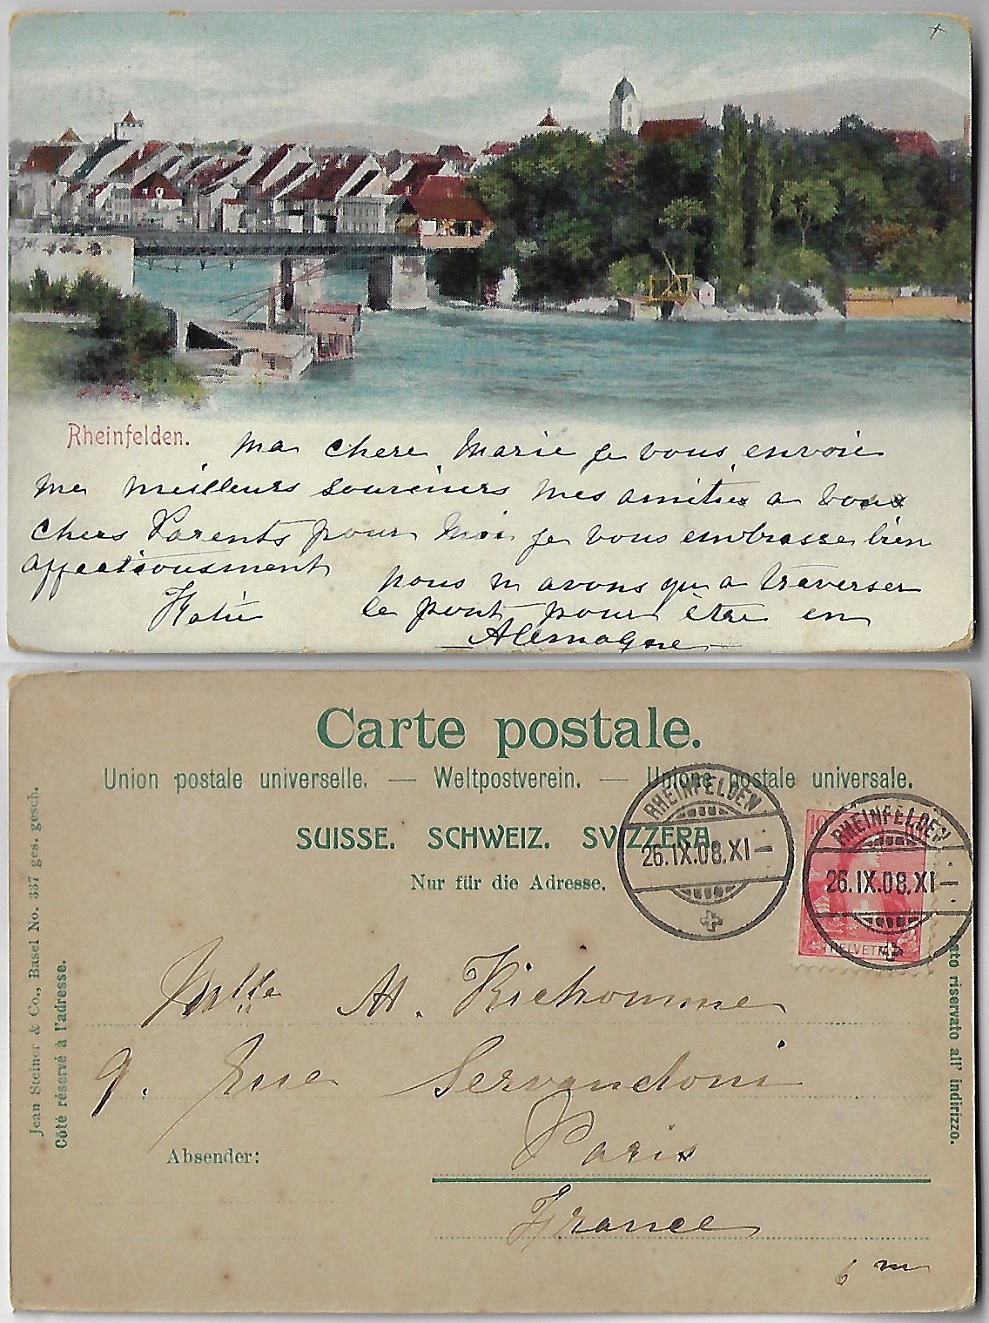 Rheinfelden.
ma chere Marie je vous envoie
me meilleurs souvenirs mes amitiés a vous
chers Parents pour Moi je vous embrasse bien
affectiousment
nous n avons qu a traverser
Katie
le pont pour être en
Alemagne
Carte postale.
Union postale universelle. — Weltpostverein. — Unione postale universale.
SUISSE. SCHWEIZ. SVIZZERA.
Nur für die Adresse.
RHEINFELDEN
26.IX.08.XI—
RHEINFELDEN
26.IX.08.XI—
10
HELVETIA
Jean Steiner & Co., Basel No. 337 ges. gesch.
Côté réservé à l'adresse.
Lato riservato all' indirizzo.
Mlle M. Richomme
9. Rue Servandoni
Paris
Absender:
France
6 m